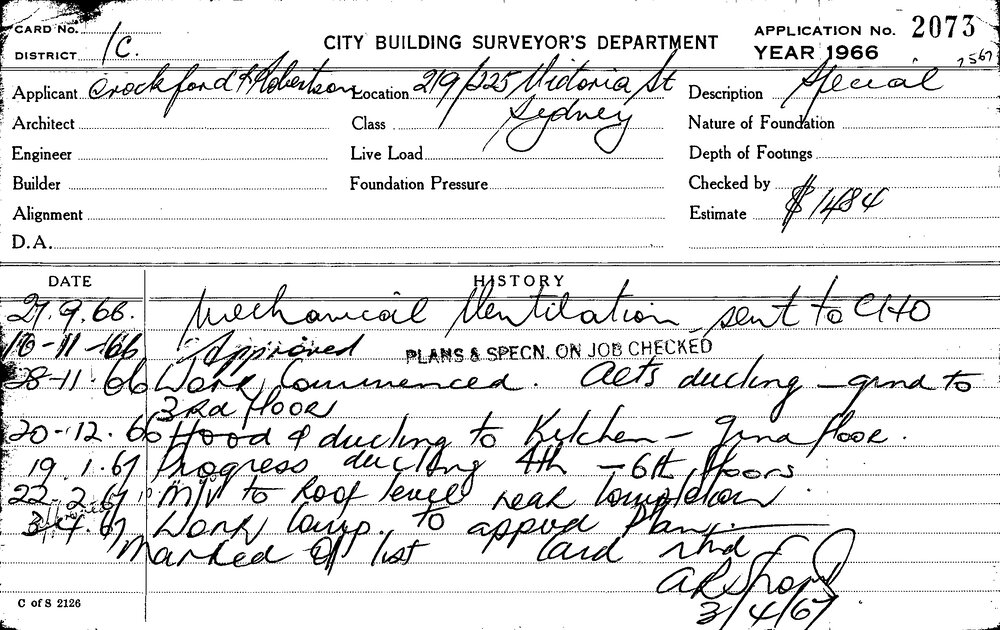 CARD No.
DISTRICT 1C.
CITY BUILDING SURVEYOR'S DEPARTMENT
APPLICATION No. 2073
YEAR 1966
7567
Applicant Crockford & Robertson Location 219/225 Victoria St Description Special
Architect Class Sydney Nature of Foundation
Engineer Live Load Depth of Footings
Builder Foundation Pressure Checked by
Alignment Estimate $1484
D.A.
DATE HISTORY
27.9.66. Mechanical Ventilation sent to CHO
10-11-66 Approved PLANS & SPECN. ON JOB CHECKED
28-11.66 Work Commenced. Aets ducting - grnd to
3rd floor
20-12.66 Hood & ducting to Kitchen - Grnd floor.
19 1.67 Progress ducting 4th - 6th floors
22-2.67 M/V to Roof level near completion.
3.4.67 Work Comp. to appvd Plan.
Marked Off list Card rtnd
3/4/67
C of S 2126